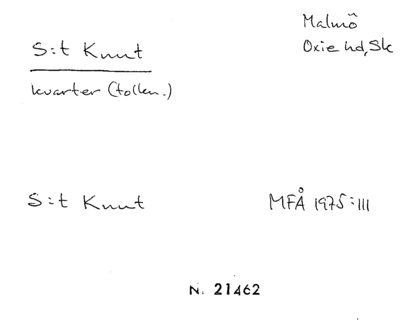 Malmö
S:t Knut
Oxie hd, Sk
kvarter (tolkn.)
S:t Knut
MFÅ 1975:III
N. 21462